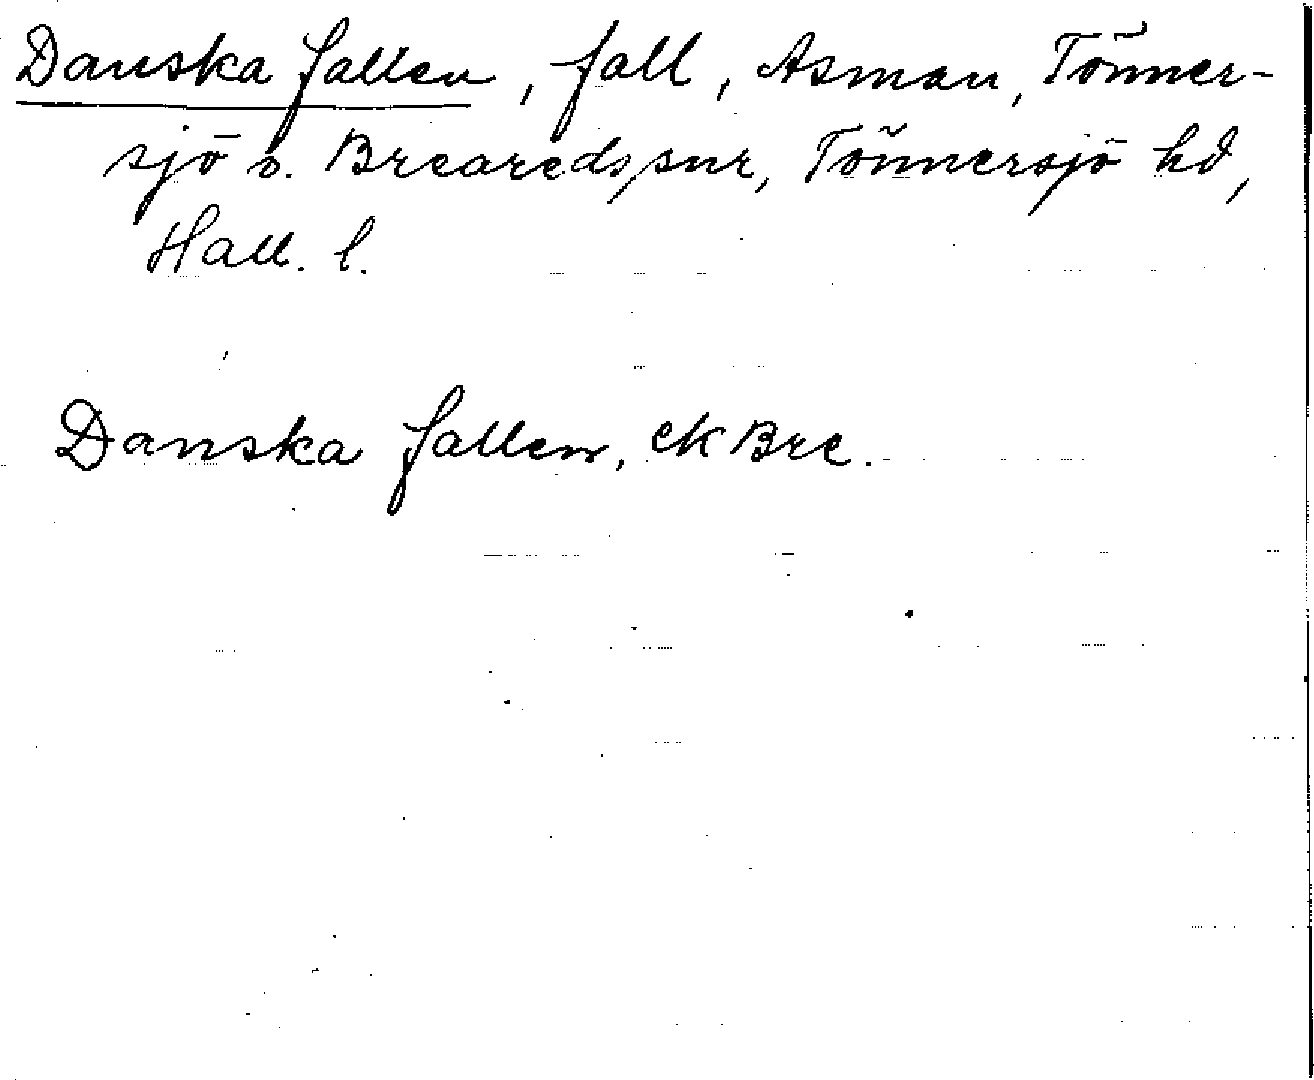 Danska fallen, fall, Assman, Tönner-
sjö o. Breareds snr, Tönnersjö hd,
Hall. l.
Danska fallen, ekBre.